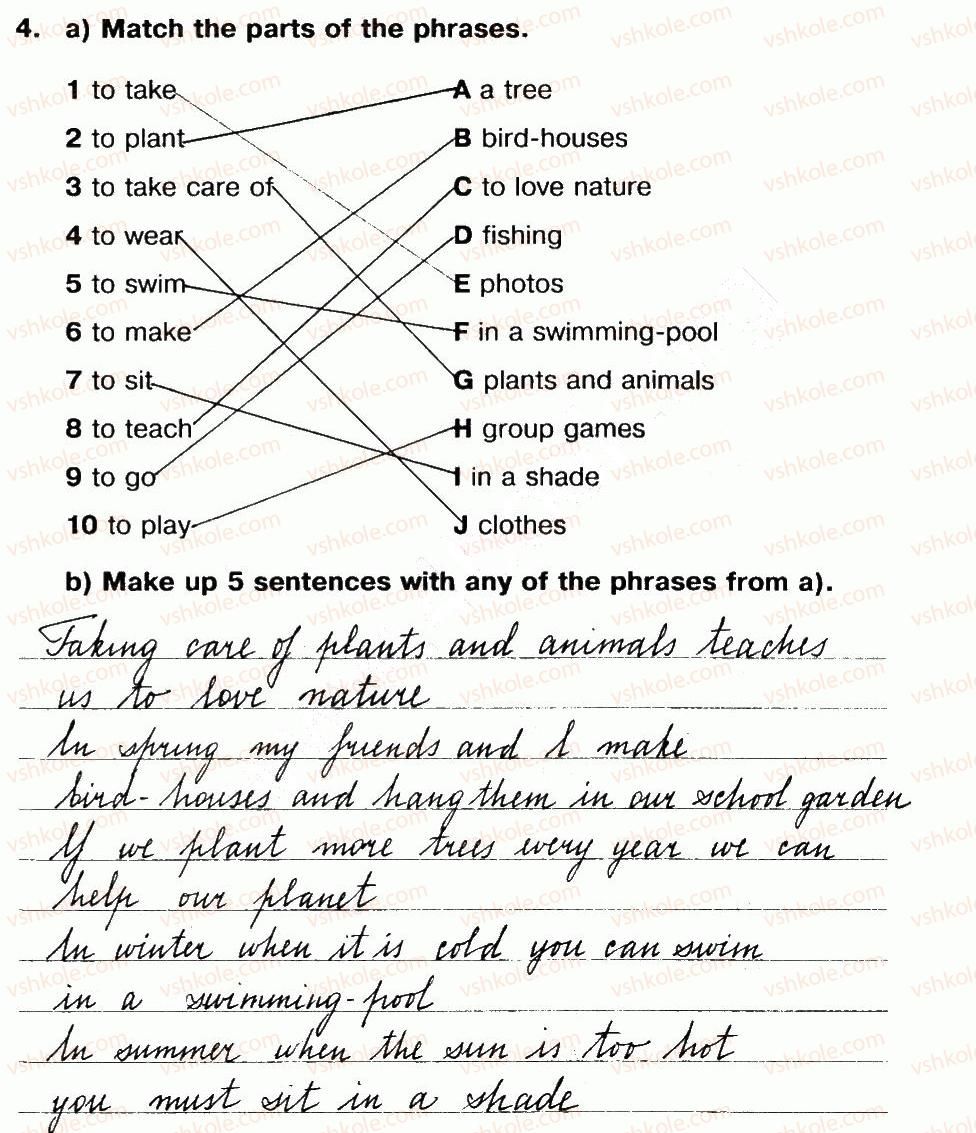 4. a) Match the parts of the phrases.
1 to take A a tree
2 to plant B bird-houses
3 to take care of C to love nature
4 to wear D fishing
5 to swim E photos
6 to make F in a swimming-pool
7 to sit G plants and animals
8 to teach H group games
9 to go I in a shade
10 to play J clothes
b) Make up 5 sentences with any of the phrases from a).
Taking care of plants and animals teaches
us to love nature
In spring my friends and I make
bird-houses and hang them in our school garden
If we plant more trees every year we can
help our planet
In winter when it is cold you can swim
in a swimming-pool
In summer when the sun is too hot
you must sit in a shade
vshkole.com